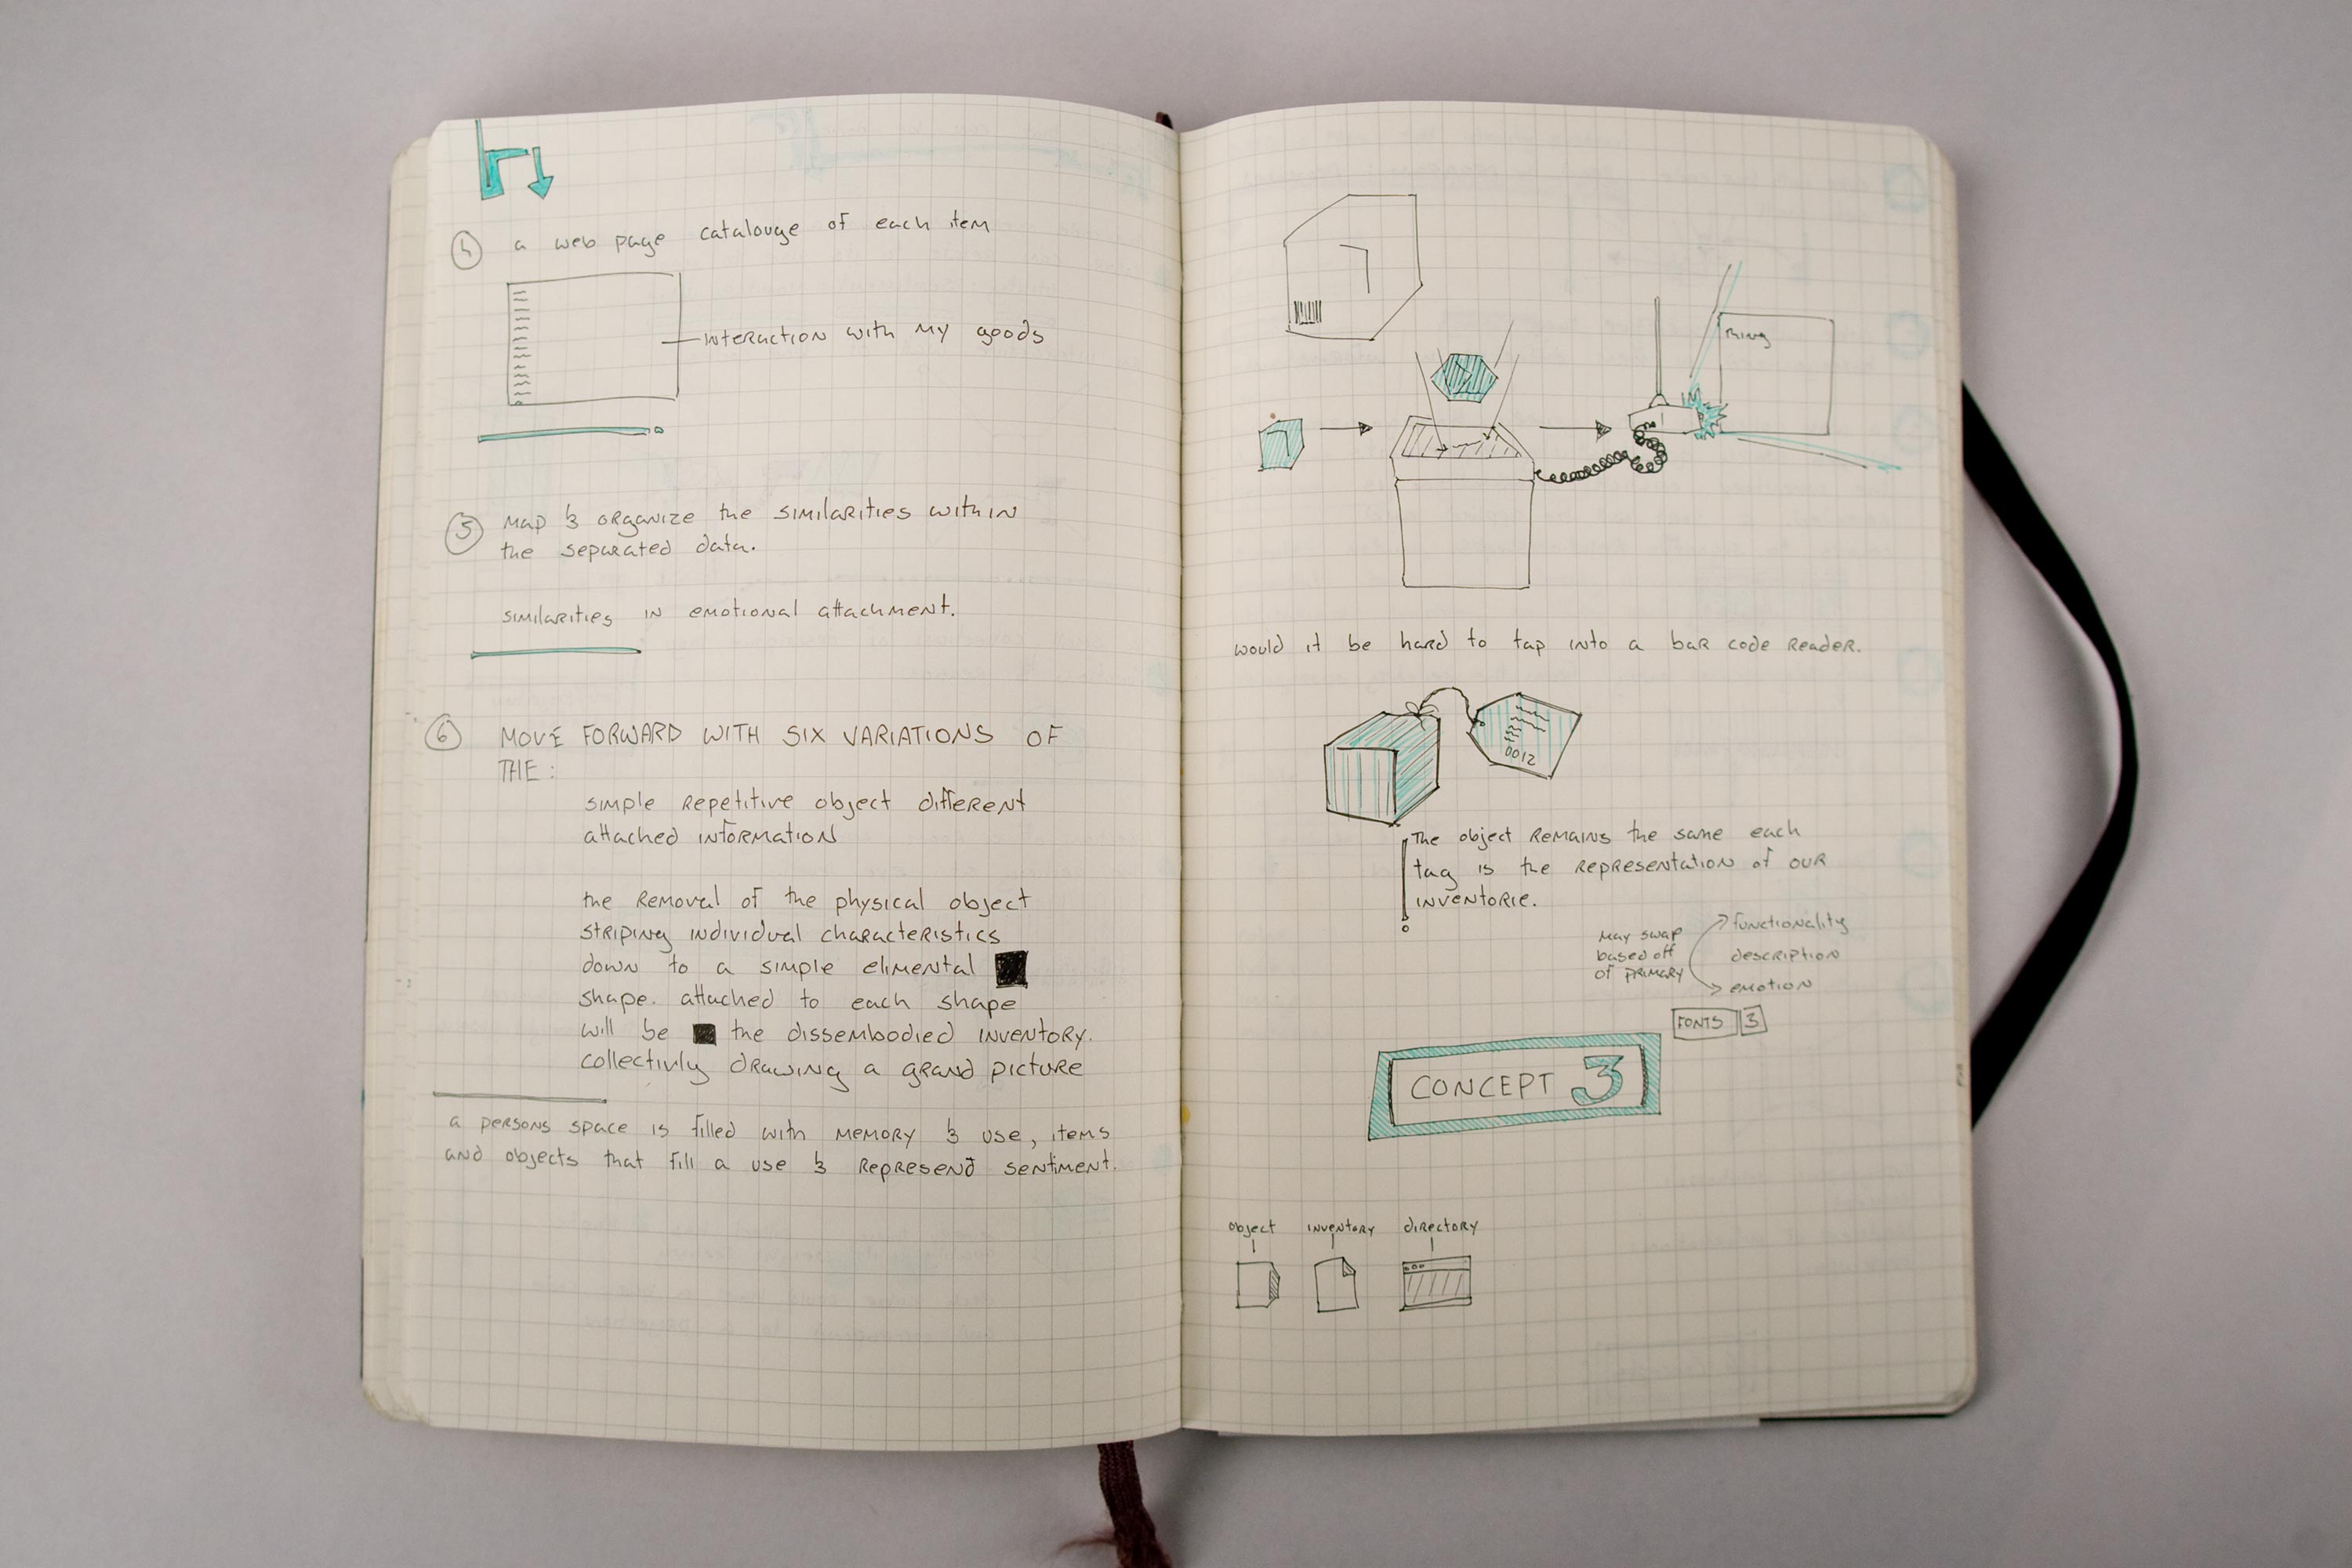 4 a web page catalouge of each item
interaction with my goods
5 map & organize the similarities within
the separated data.
similarities in emotional attachment.
6 MOVE FORWARD WITH SIX VARIATIONS OF
THE:
simple repetitive object different
attached information
the removal of the physical object
striping individual characteristics
down to a simple elimental
shape. attached to each shape
will be the dissembodied inventory.
collectivly drawing a grand picture
a persons space is filled with memory & use, items
and objects that fill a use & represend sentiment.
would it be hard to tap into a bar code reader.
0012
The object remains the same each
tag is the representation of our
inventorie.
may swap
based off
of primary
functionality
description
emotion
FONTS 3
CONCEPT 3
object inventory directory